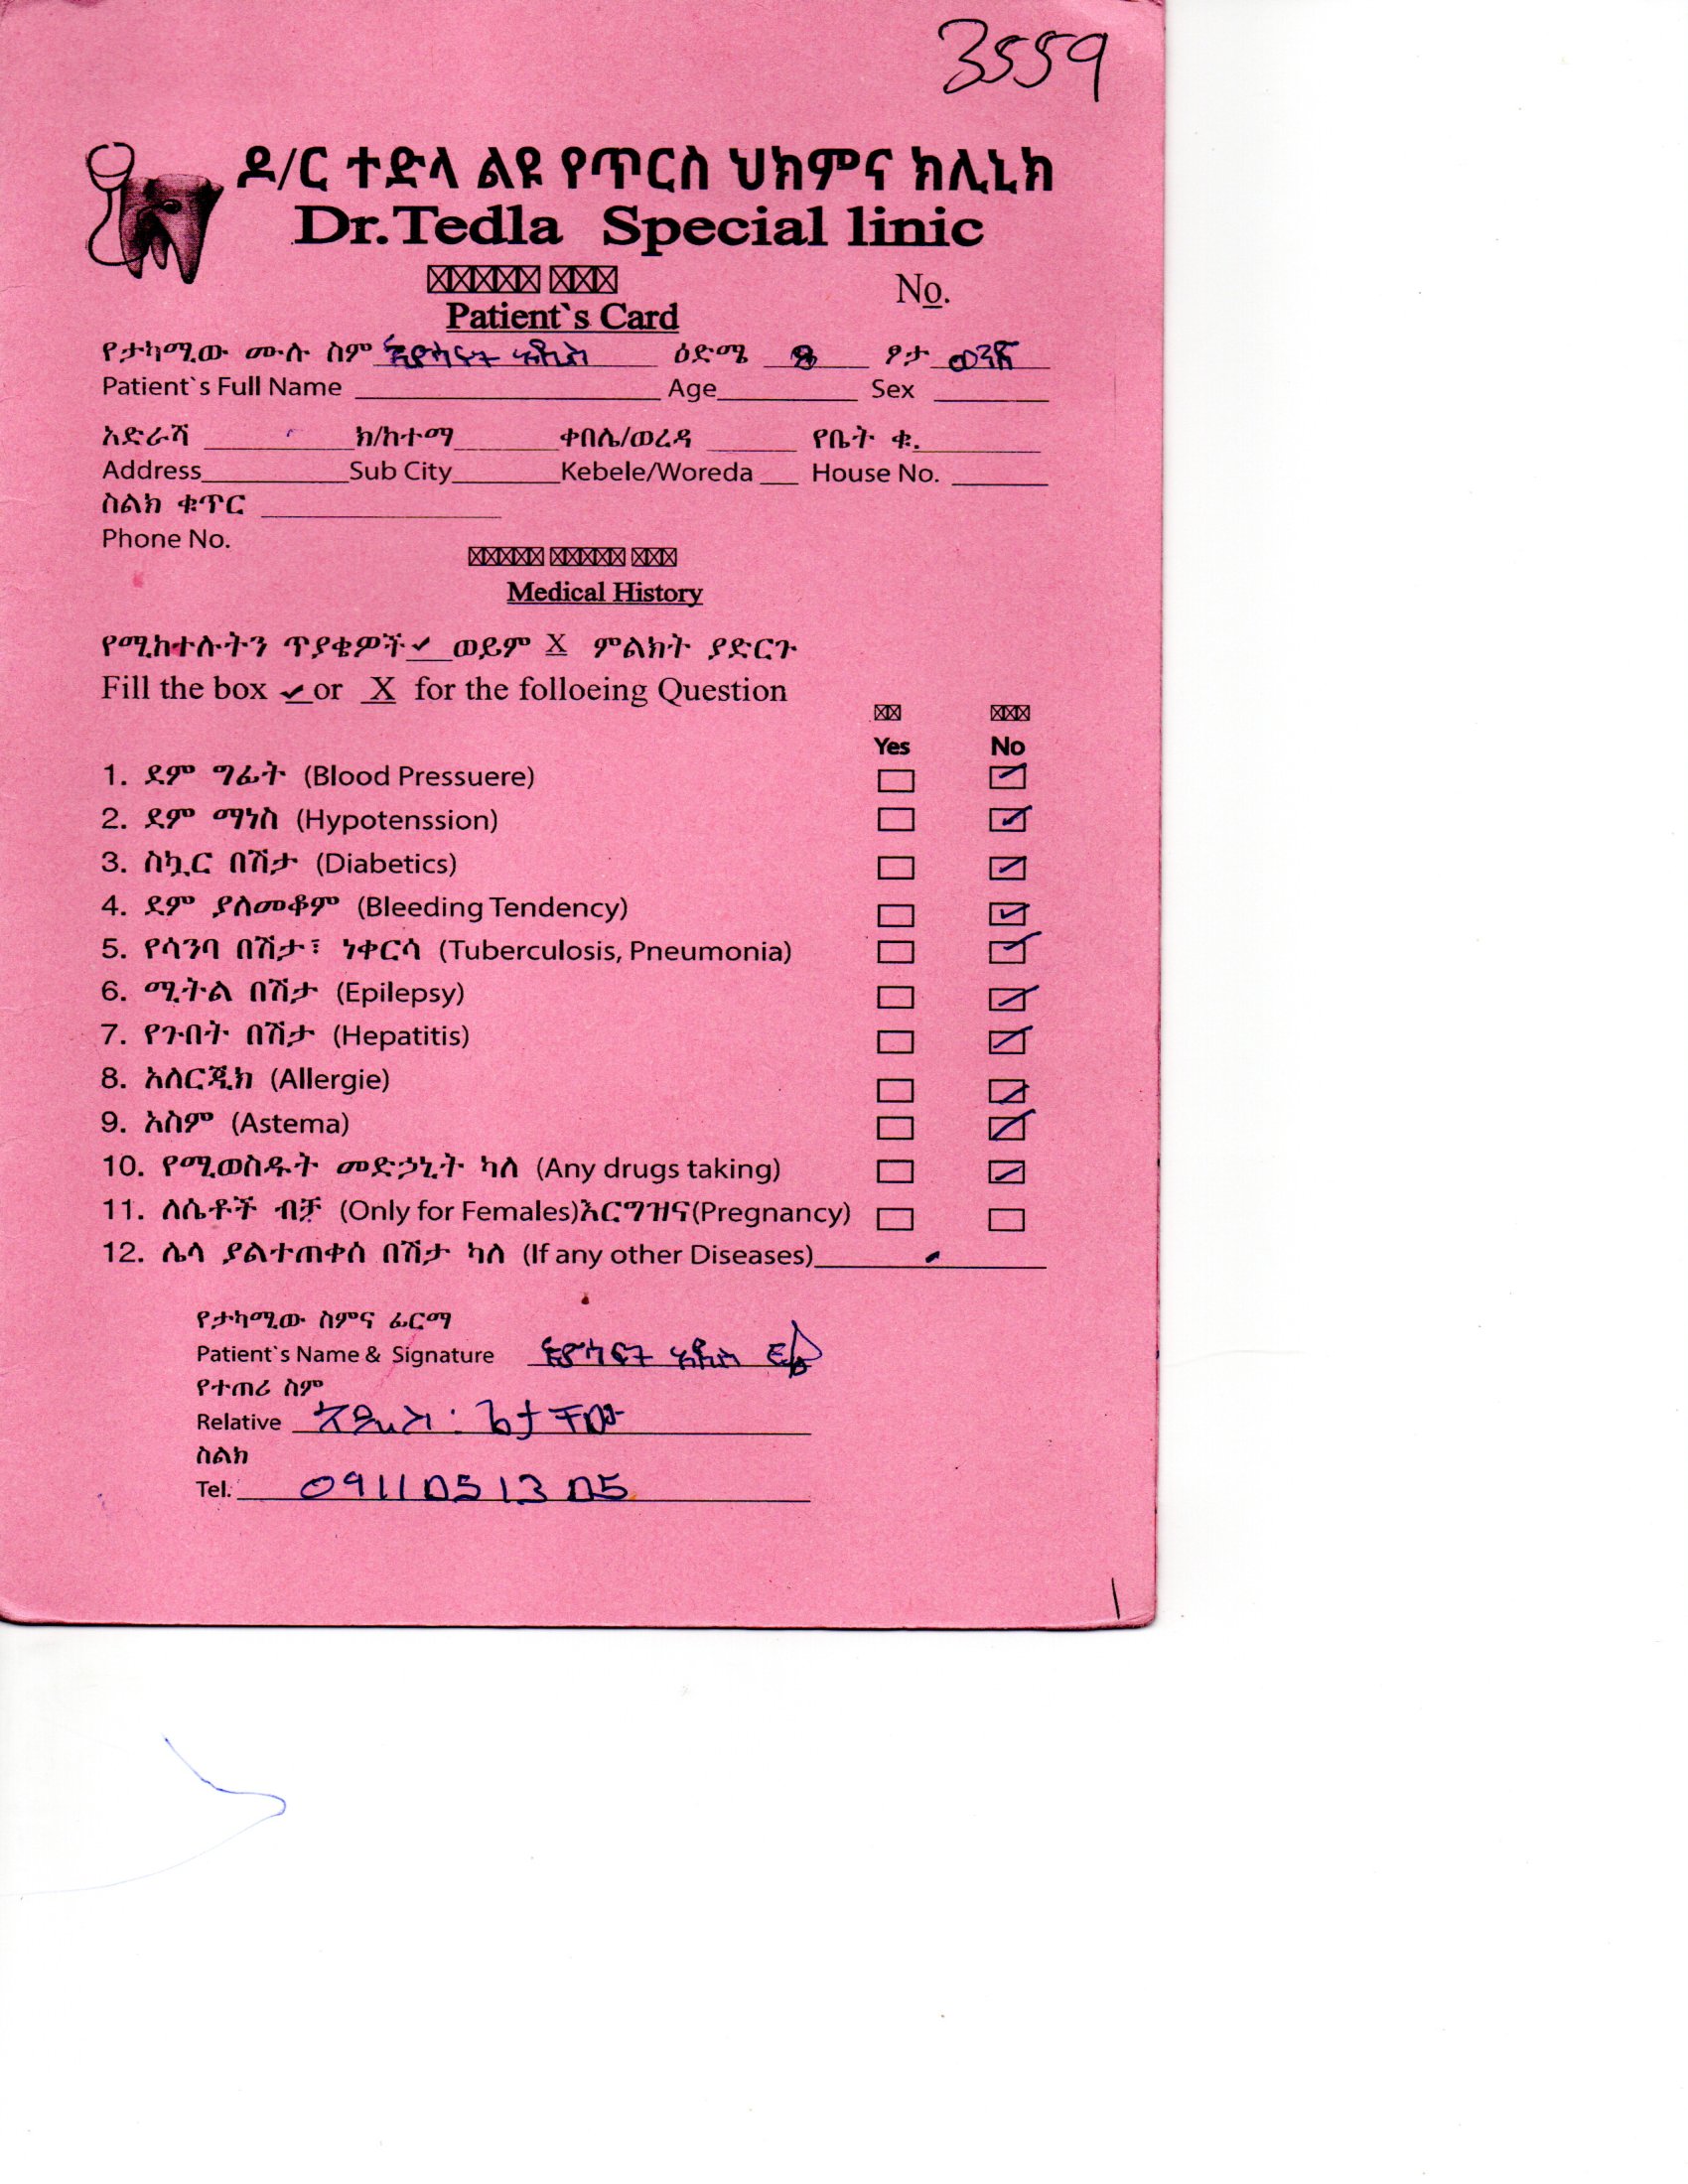 3559
ዶ/ር ተድላ ልዩ የጥርስ ህክምና ክሊኒክ
Dr.Tedla Special linic
No.
Patient`s Card
የታካሚው ሙሉ ስም አዲስ ዕድሜ 8 ፆታ ወንድ
Patient`s Full Name Age Sex
አድራሻ ክ/ከተማ ቀበሌ/ወረዳ የቤት ቁ.
Address Sub City Kebele/Woreda House No.
ስልክ ቁጥር
Phone No.
Medical History
የሚከተሉትን ጥያቄዎች ✓ ወይም X ምልክት ያድርጉ
Fill the box ✓ or X for the folloeing Question
Yes No
1. ደም ግፊት (Blood Pressuere)
2. ደም ማነስ (Hypotenssion)
3. ስኳር በሽታ (Diabetics)
4. ደም ያለመቆም (Bleeding Tendency)
5. የሳንባ በሽታ፣ ነቀርሳ (Tuberculosis, Pneumonia)
6. ሚትል በሽታ (Epilepsy)
7. የጉበት በሽታ (Hepatitis)
8. አለርጂክ (Allergie)
9. አስም (Astema)
10. የሚወስዱት መድኃኒት ካለ (Any drugs taking)
11. ለሴቶች ብቻ (Only for Females)እርግዝና(Pregnancy)
12. ሌላ ያልተጠቀሰ በሽታ ካለ (If any other Diseases)
የታካሚው ስምና ፊርማ
Patient`s Name & Signature አዲስ
የተጠሪ ስም
Relative አዲስ ጌታቸው
ስልክ
Tel. 0911051305